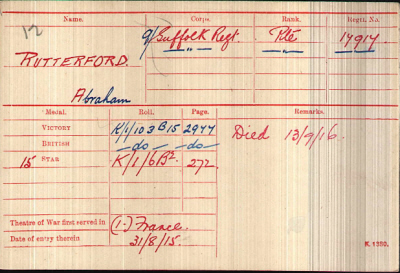 Name. Corps. Rank. Regtl. No.
12 9/Suffolk Regt Pte 17917
RUTTERFORD. — „ — — „ — — „ —
Abraham
Medal. Roll. Page. Remarks.
VICTORY K/1/103 B15 2977 Died 13/9/16.
BRITISH —do— —do—
15 STAR K/1/6B2. 272.
Theatre of War first served in (1-) France.
Date of entry therein 31/8/15.
K. 1380.